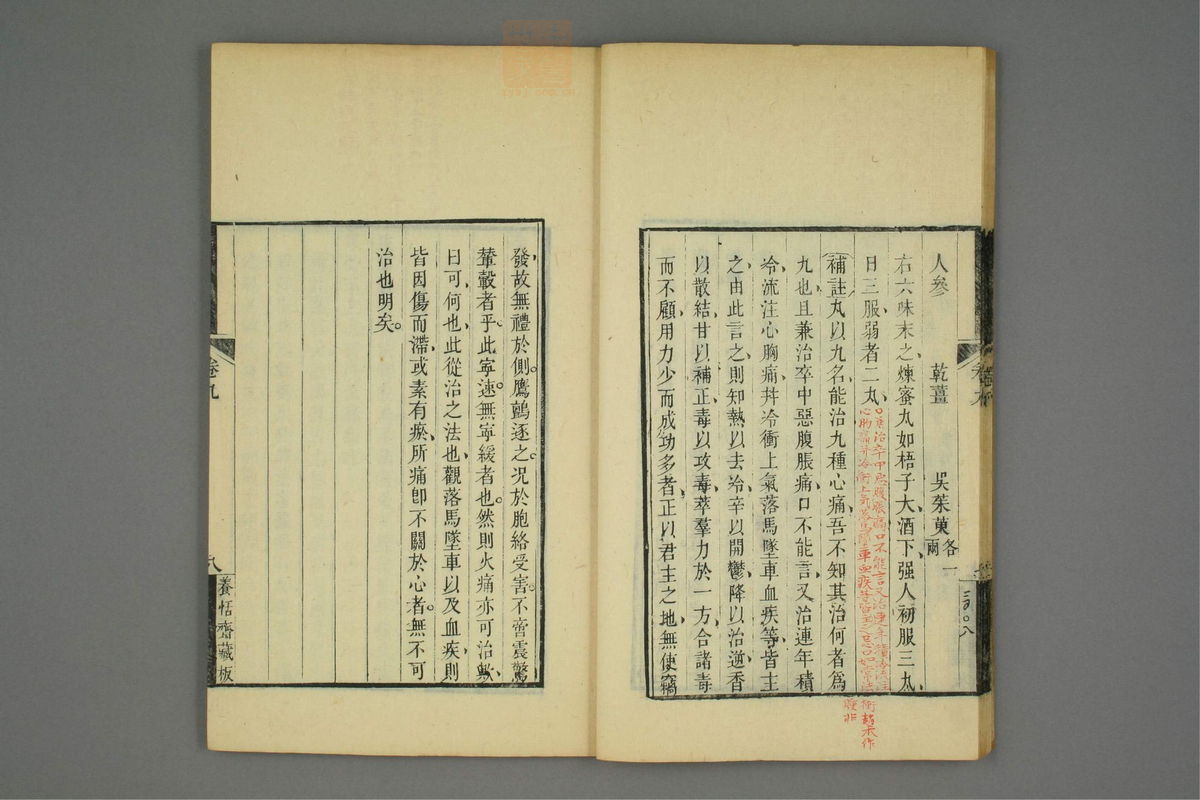 人參 乾薑 吳茱萸各一兩
右六味末之煉蜜丸如梧子大酒下强人初服三丸
日三服弱者二丸
口兼治卒中惡腹脹痛口不能言又治連年積冷流注
心胸痛并冷衝上氣落馬墜車血疾等皆主之忌口如常法
衝趙本作
補註丸以九名能治九種心痛吾不知其治何者爲
九也且兼治卒中惡腹脹痛口不能言又治連年積
冷流注心胸痛并冷衝上氣落馬墜車血疾等皆主
之由此言之則知熱以去冷辛以開鬱降以治逆香
以散結甘以補正毒以攻毒萃羣力於一方合諸毒
而不顧用力少而成功多者正以君主之地無使竊
卷九
發故無禮於側鷹鸇逐之况於胞絡受害不啻震驚
輦轂者乎此寧速無寧緩者也然則火痛亦可治歟
曰可何也此從治之法也觀落馬墜車以及血疾則
皆因傷而滯或素有瘀所痛卽不關於心者無不可
治也明矣
卷九
八
養恬齋藏板